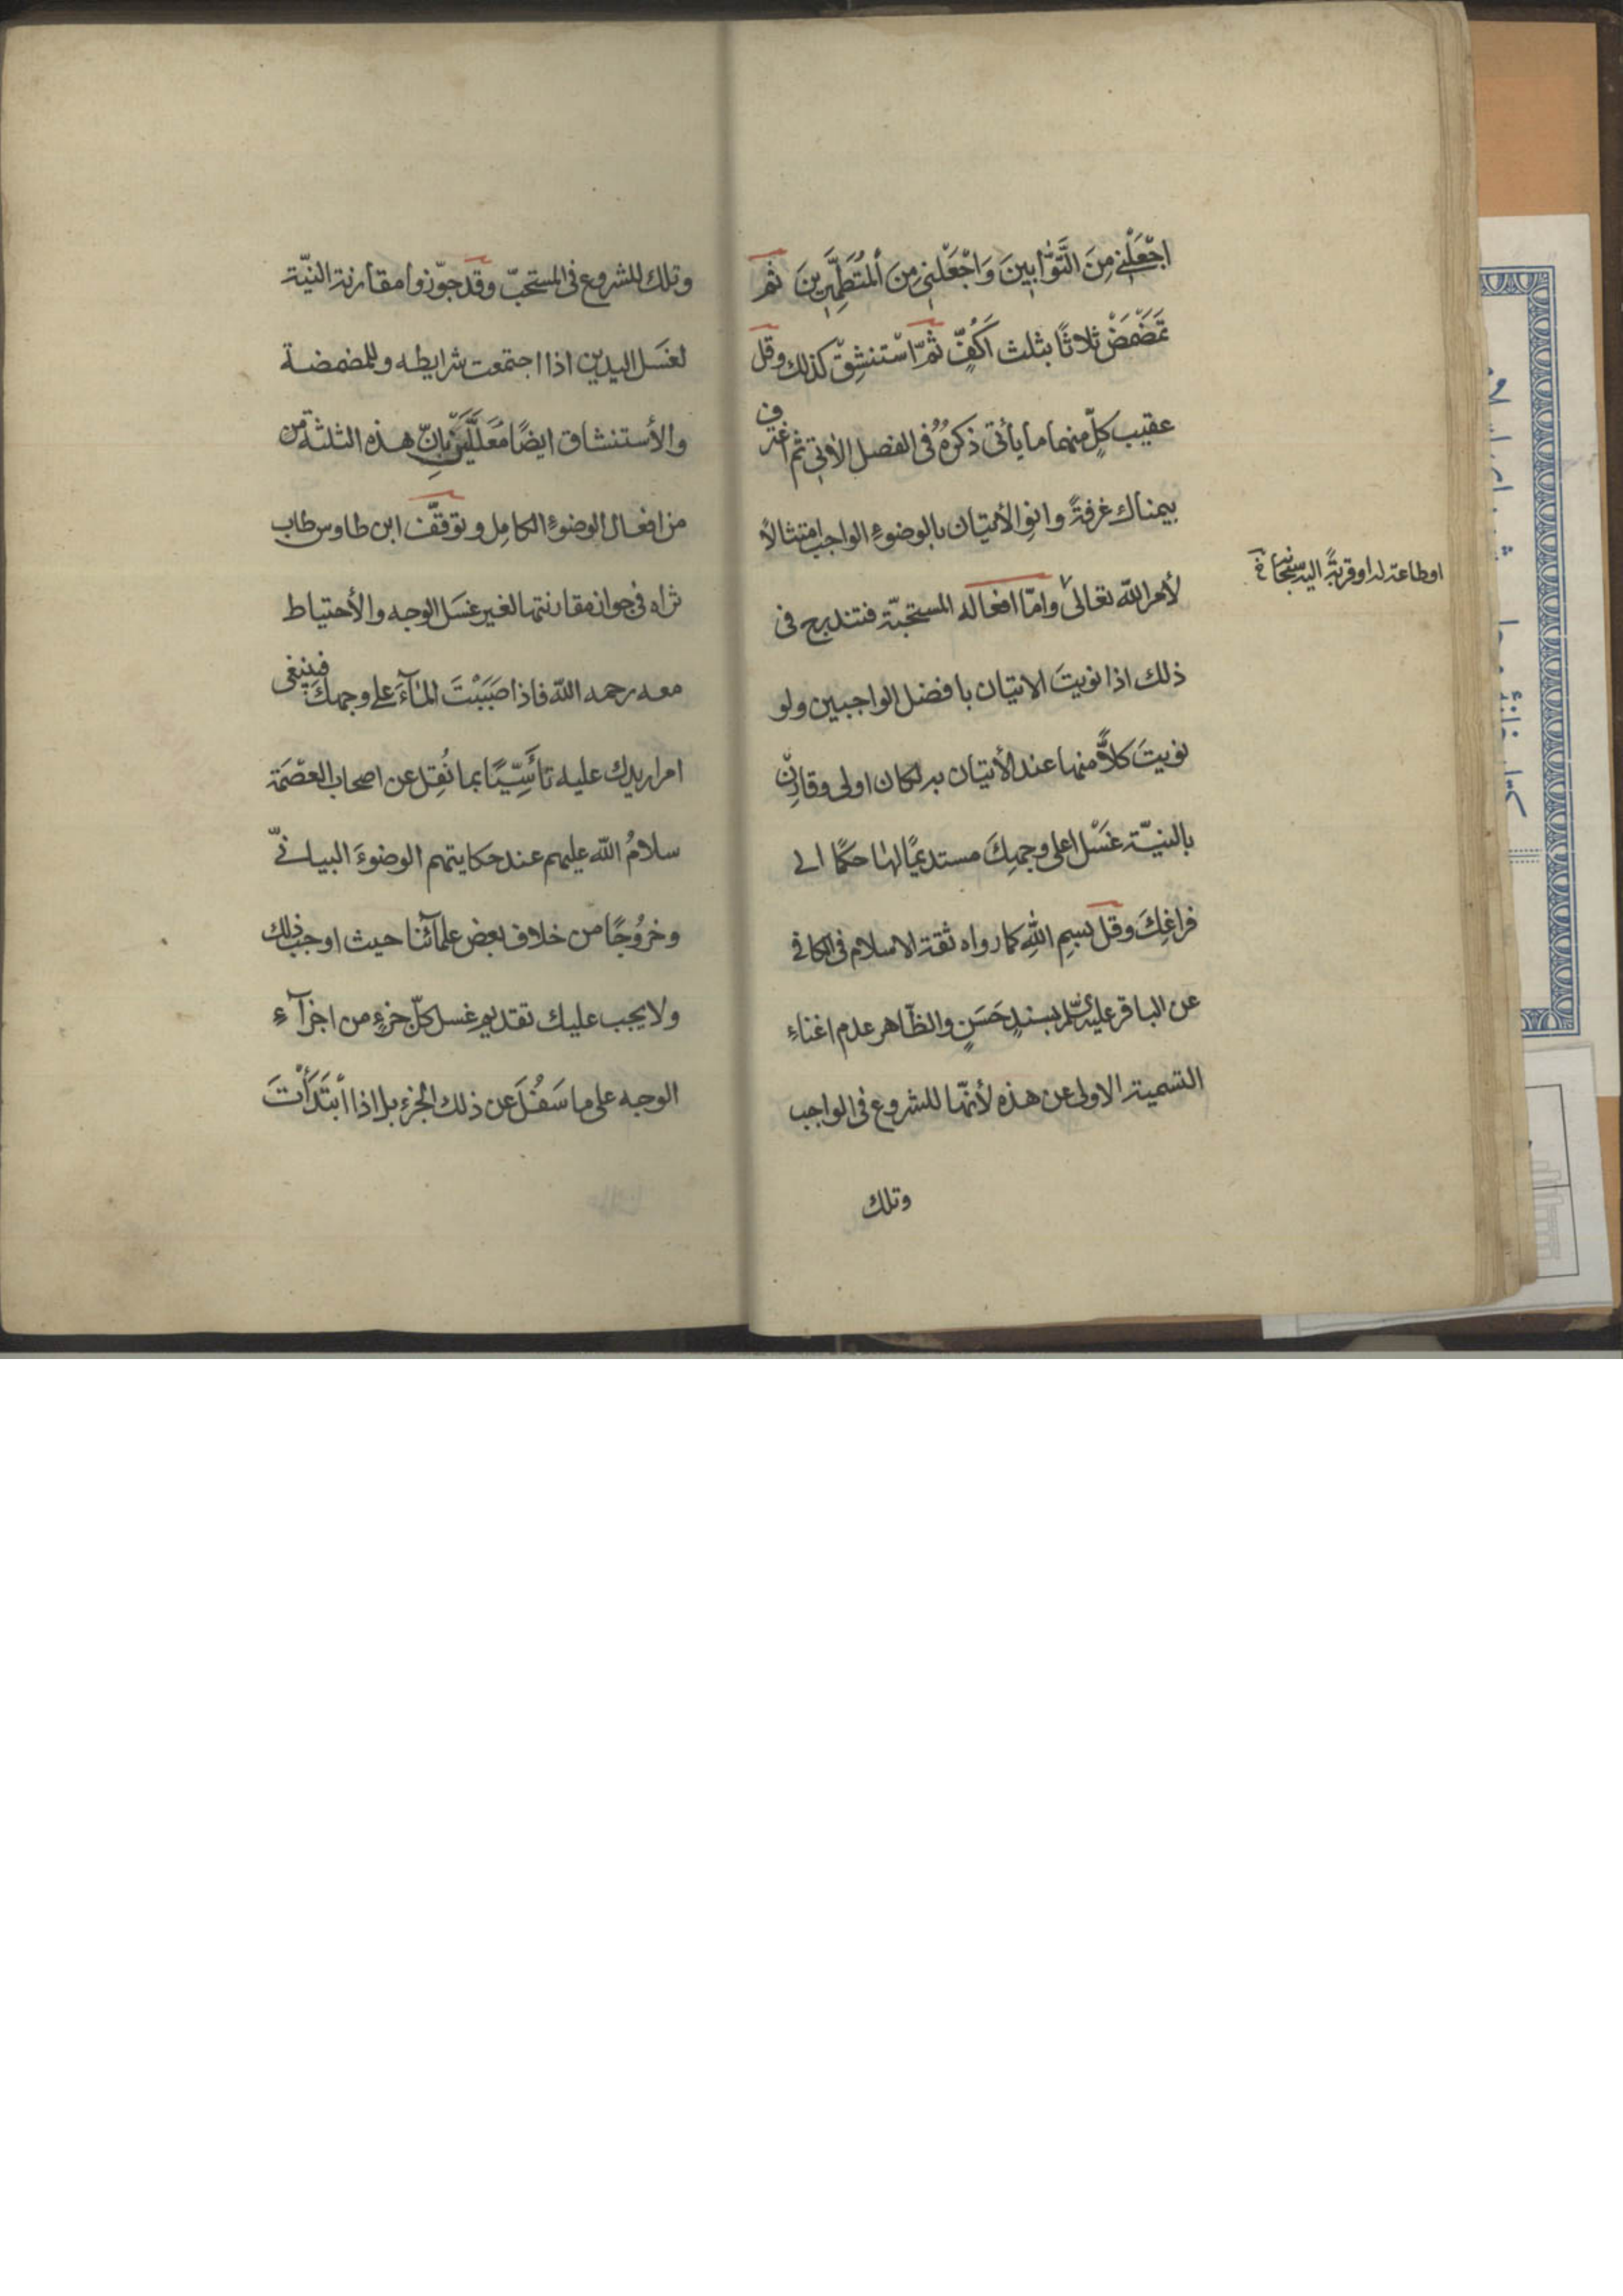 اجْعَلْنِي مِنَ التَّوَّابِينَ وَاجْعَلْنِي مِنَ الْمُتَطَهِّرِينَ ثم
تَمَضْمَضْ ثلاثًا بثلث اَكُفٍّ ثمّ اسْتنشِقْ كذلك وقل
عقيب كلٍّ منهما ما يأتى ذكرهُ فى الفصل الآتى ثم اغترف
بيمناك غرفةً وانوِ الأتيان بالوضوءِ الواجب امتثالاً
لأمر الله تعالى وامّا افعاله المستحبّة فتندرج فى
اوطاعة له او قربةً اليه سبحانه
ذلك اذا نويتَ الاتيان بافضل الواجبين ولو
نويتَ كلاًّ منها عند الأتيان به لكان اولى وقارِن
بالنيّة غَسْل اعلى وجهِكَ مستديمًا لها حكمًا الى
فراغِكَ وقل بسمِ اللهِ كما رواه ثقة الاسلام فى الكافى
عن الباقر عليه السّلم بسندٍ حَسَنٍ والظّاهر عدم اغناءِ
التسمية الاولى عن هذه لأنّها للشروع فى الواجب
وتلك
وتلك للشروع فى المستحبّ وقد جوّزوا مقارنة النيّة
لغسَل اليدين اذا اجتمعت شرايطه وللمضمضة
والأستنشاق ايضًا مُعَلّلينَ بانّ هذه الثلثة من
من افعال الوضوءِ الكامِل وتوقّف ابن طاوس طاب
ثراه فى جواز مقارنتها لغير غسَل الوجه والأحتياط
معه رحمه الله فاذا صَبَبْتَ المآءَ على وجهكَ فينبغى
امرار يدك عليه تأسّيًا بما نُقِل عن اصحاب العصْمَة
سلامُ الله عليهم عند حكايتهم الوضوءَ البيانىّ
وخرُوجًا من خلاف بعض علمآئنا حيث اوجب ذلك
ولا يجب عليك تقديم غسل كلّ جزءٍ من اجزآءِ
الوجه على ما سَفُلَ عن ذلك الجزءِ بل اذا ابْتَدَأْتَ